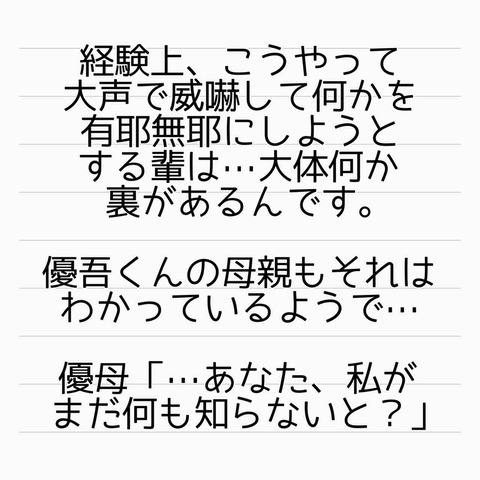 経験上、こうやって
大声で威嚇して何かを
有耶無耶にしようと
する輩は…大体何か
裏があるんです。
優吾くんの母親もそれは
わかっているようで…
優母「…あなた、私が
まだ何も知らないと？」